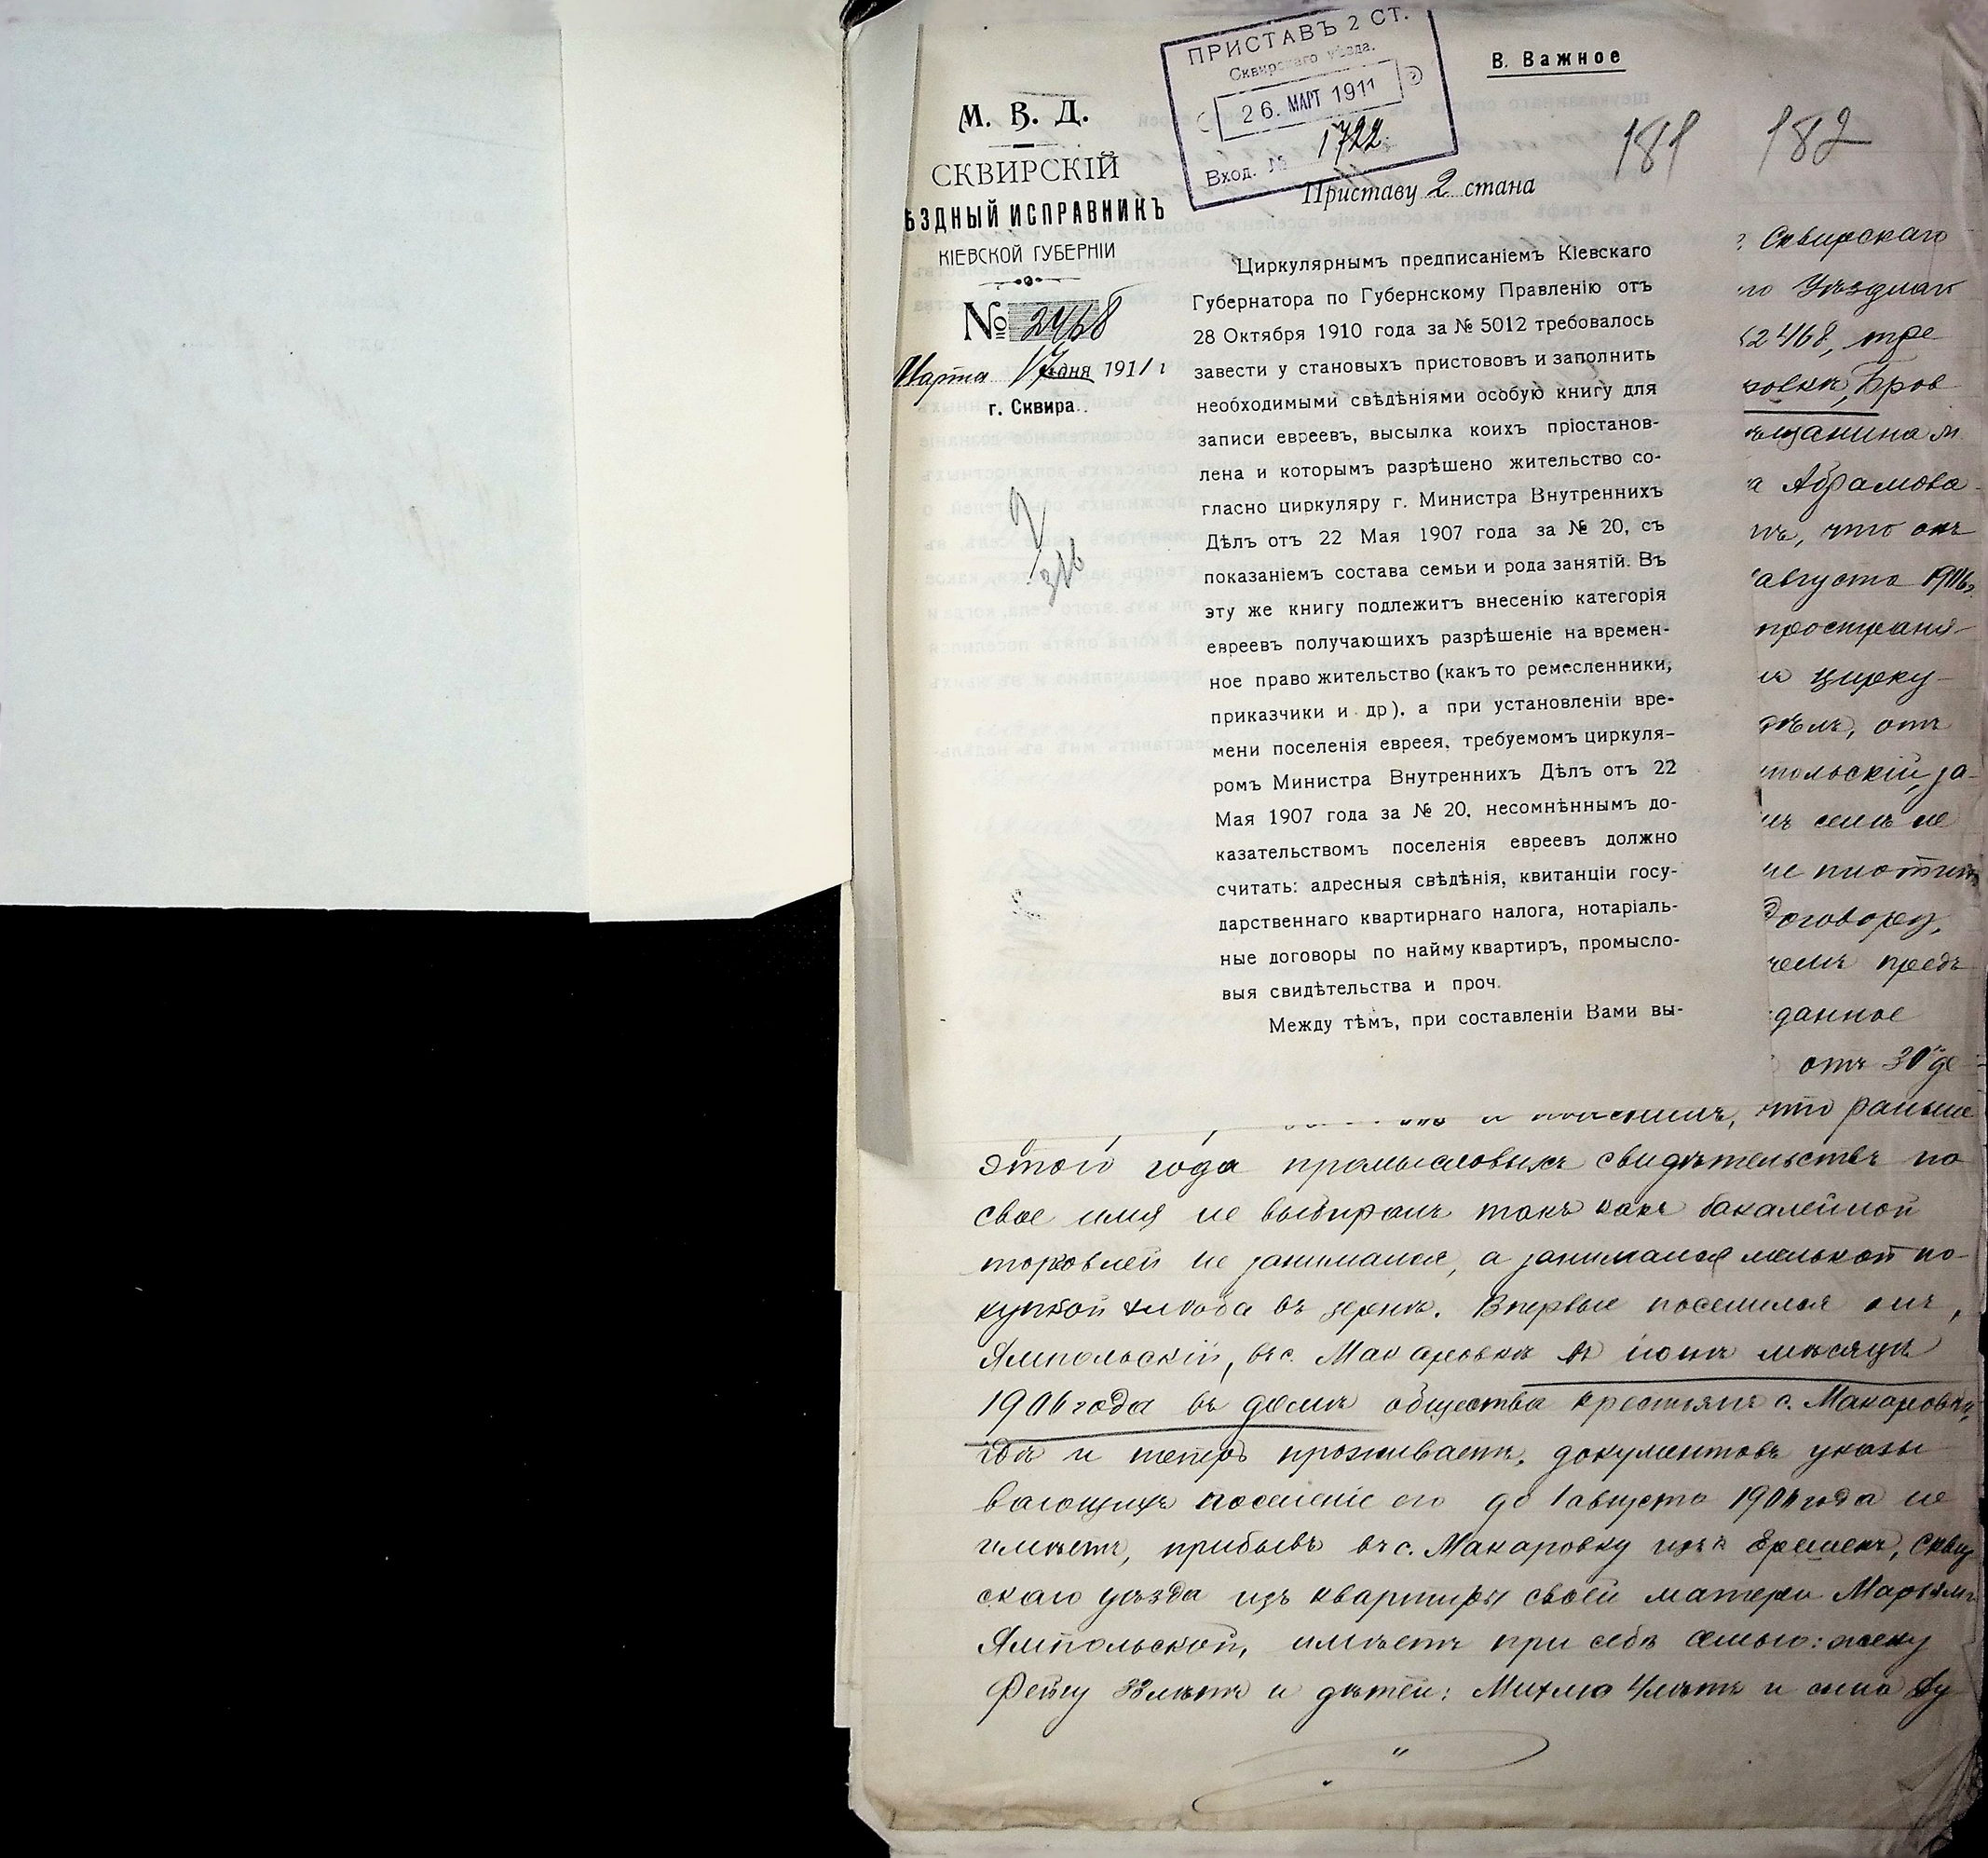 ПРИСТАВЪ 2 СТ.
Сквирскаго уѣзда.
26. МАРТ 1911
Вход. № 1722
В. Важное
181
182
М. В. Д.
СКВИРСКІЙ
ѢЗДНЫЙ ИСПРАВНИКЪ
КІЕВСКОЙ ГУБЕРНІИ
№ 2468
Марта 17 дня 1911 г
г. Сквира.
Приставу 2 стана
Циркулярнымъ предписаніемъ Кіевскаго
Губернатора по Губернскому Правленію отъ
28 Октября 1910 года за № 5012 требовалось
завести у становыхъ пристововъ и заполнить
необходимыми свѣдѣніями особую книгу для
записи евреевъ, высылка коихъ пріостанов-
лена и которымъ разрѣшено жительство со-
гласно циркуляру г. Министра Внутреннихъ
Дѣлъ отъ 22 Мая 1907 года за № 20, съ
показаніемъ состава семьи и рода занятій. Въ
эту же книгу подлежитъ внесенію категорія
евреевъ получающихъ разрѣшеніе на времен-
ное право жительство (какъ то ремесленники,
приказчики и др). а при установленіи вре-
мени поселенія еврея, требуемомъ циркуля-
ромъ Министра Внутреннихъ Дѣлъ отъ 22
Мая 1907 года за № 20, несомнѣннымъ до-
казательствомъ поселенія евреевъ должно
считать: адресныя свѣдѣнія, квитанціи госу-
дарственнаго квартирнаго налога, нотаріаль-
ные договоры по найму квартиръ, промысло-
выя свидѣтельства и проч.
Между тѣмъ, при составленіи Вами вы-
Сквирскаго
Уѣзднаго
2468, тре
ровки, Бров
ѣщанина м.
а Абрамова
что онъ
августа 1906 г.
простране-
цирку-
дѣлъ, отъ
польскій, за-
семъ не
не платитъ
договору,
чемъ предъ
данное
отъ 30 де-
что раньше
этого года промысловыхъ свидѣтельствъ на
свое имя не выбиралъ такъ какъ бакалейной
торговлей не занимался, а занимался мелькой по-
купкой хлѣба въ зернѣ. Впервые поселился онъ,
Ямпольскій, въ с. Макаровкѣ въ іюнѣ мѣсяцѣ
1906 года въ домѣ общества крестьянъ с. Макаровки,
гдѣ и теперь проживаетъ, документовъ указы
вающихъ поселеніе его до 1 августа 1906 года не
имѣетъ, прибывъ въ с. Макаровку изъ Ерешекъ, Сквир
скаго уѣзда изъ квартиры своей матери Марьямъ
Ямпольской, имѣетъ при себѣ семью: жену
Фейгу 33 лѣтъ и дѣтей: Михлю 4 лѣтъ и сына